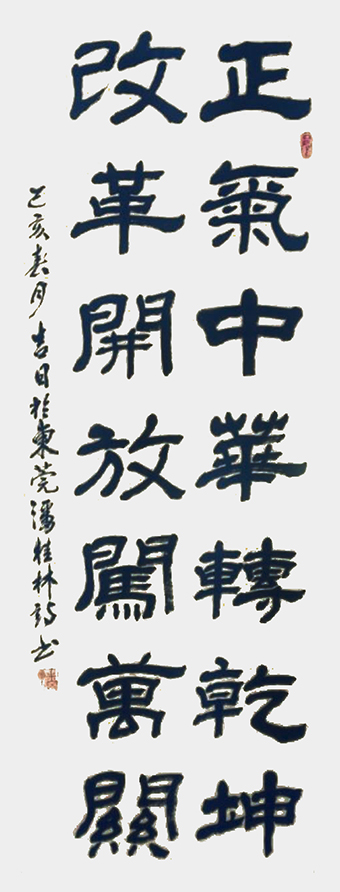 正氣中華轉乾坤
改革開放闖萬關
己亥春月吉日於東莞潘桂林詩書